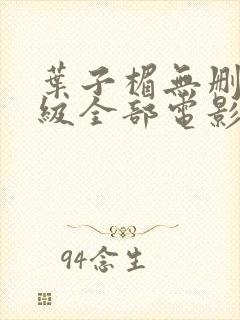 葉子楣無刪
級全部電影
94念生